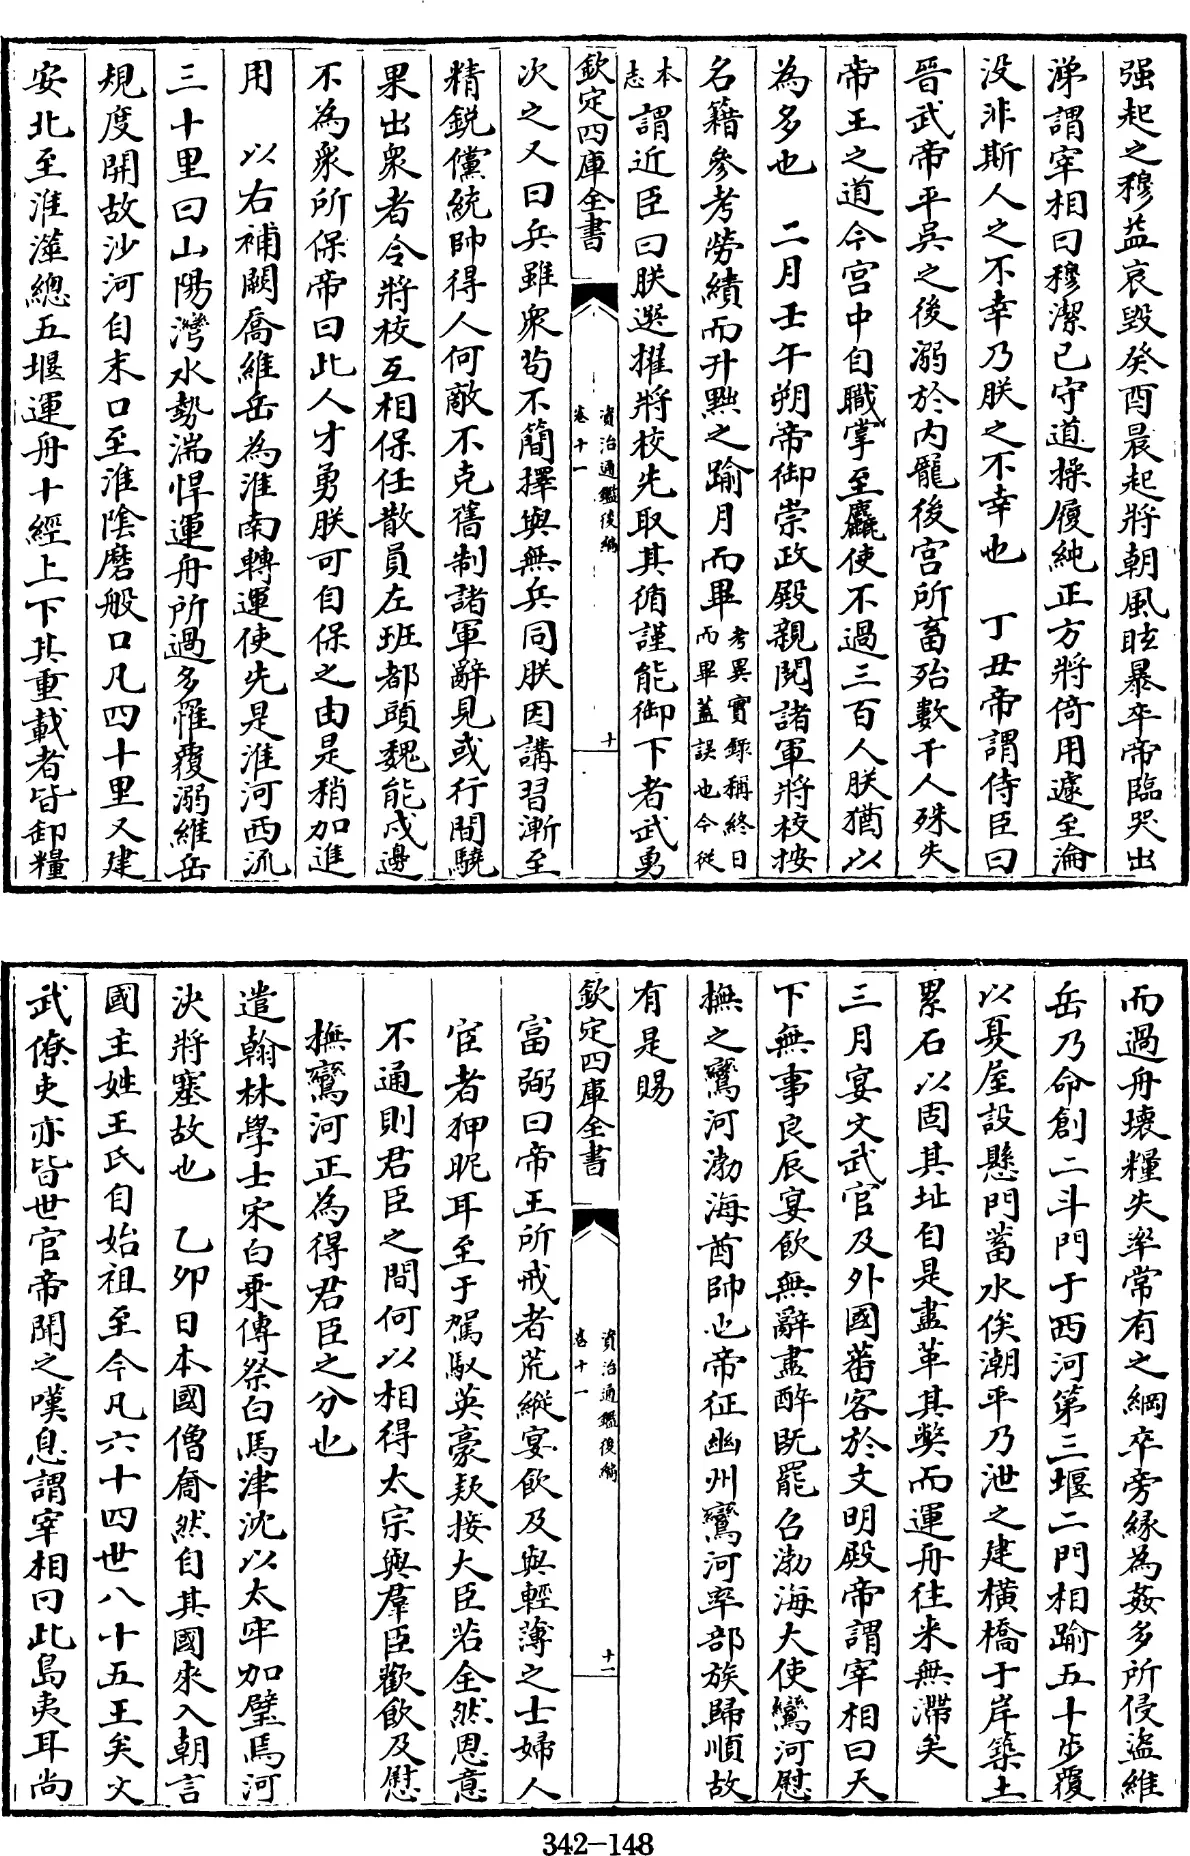 强起之穆益哀毀癸酉晨起將朝風眩暴卒帝臨哭出
涕謂宰相曰穆潔已守道操履純正方將倚用遽至淪
没非斯人之不幸乃朕之不幸也　丁丑帝謂侍臣曰
晉武帝平吳之後溺於内寵後宫所畜殆數千人殊失
帝王之道今宫中自職掌至麤使不過三百人朕猶以
為多也　二月壬午朔帝御崇政殿親閲諸軍將校按
名籍參考勞績而升黜之踰月而畢考異實錄稱終日而畢葢誤也今從
本志謂近臣曰朕選擢將校先取其循謹能御下者武勇
欽定四庫全書
資治通鑑後編
卷十一
十
次之又曰兵雖衆苟不簡擇與無兵同朕因講習漸至
精鋭儻統帥得人何敵不克舊制諸軍辭見或行間驍
果出衆者令將校互相保任散員左班都頭魏能戍邊
不為衆所保帝曰此人才勇朕可自保之由是稍加進
用　以右補闕喬維岳為淮南轉運使先是淮河西流
三十里曰山陽灣水勢湍悍運舟所過多罹覆溺維岳
規度開故沙河自末口至淮陰磨般口凡四十里又建
安北至淮澨總五堰運舟十經上下其重載者皆卸糧
而過舟壞糧失率常有之綱卒旁緣為姦多所侵盜維
岳乃命創二斗門于西河第三堰二門相踰五十步覆
以夏屋設懸門蓄水俟潮平乃泄之建横橋于岸築土
累石以固其址自是盡革其弊而運舟往来無滯矣
三月宴文武官及外國蕃客於文明殿帝謂宰相曰天
下無事良辰宴飲無辭盡醉既罷召渤海大使鸞河慰
撫之鸞河渤海酋帥也帝征幽州鸞河率部族歸順故
有是賜
欽定四庫全書
資治通鑑後編
卷十一
十一
富弼曰帝王所戒者荒縱宴飲及與輕薄之士婦人
宦者狎昵耳至于駕馭英豪欵接大臣若全然恩意
不通則君臣之間何以相得太宗與羣臣歡飲及慰
撫鸞河正為得君臣之分也
遣翰林學士宋白乘傳祭白馬津沈以太牢加璧焉河
決將塞故也　乙卯日本國僧奝然自其國來入朝言
國主姓王氏自始祖至今凡六十四世八十五王矣文
武僚吏亦皆世官帝聞之嘆息謂宰相曰此島夷耳尚
342-148